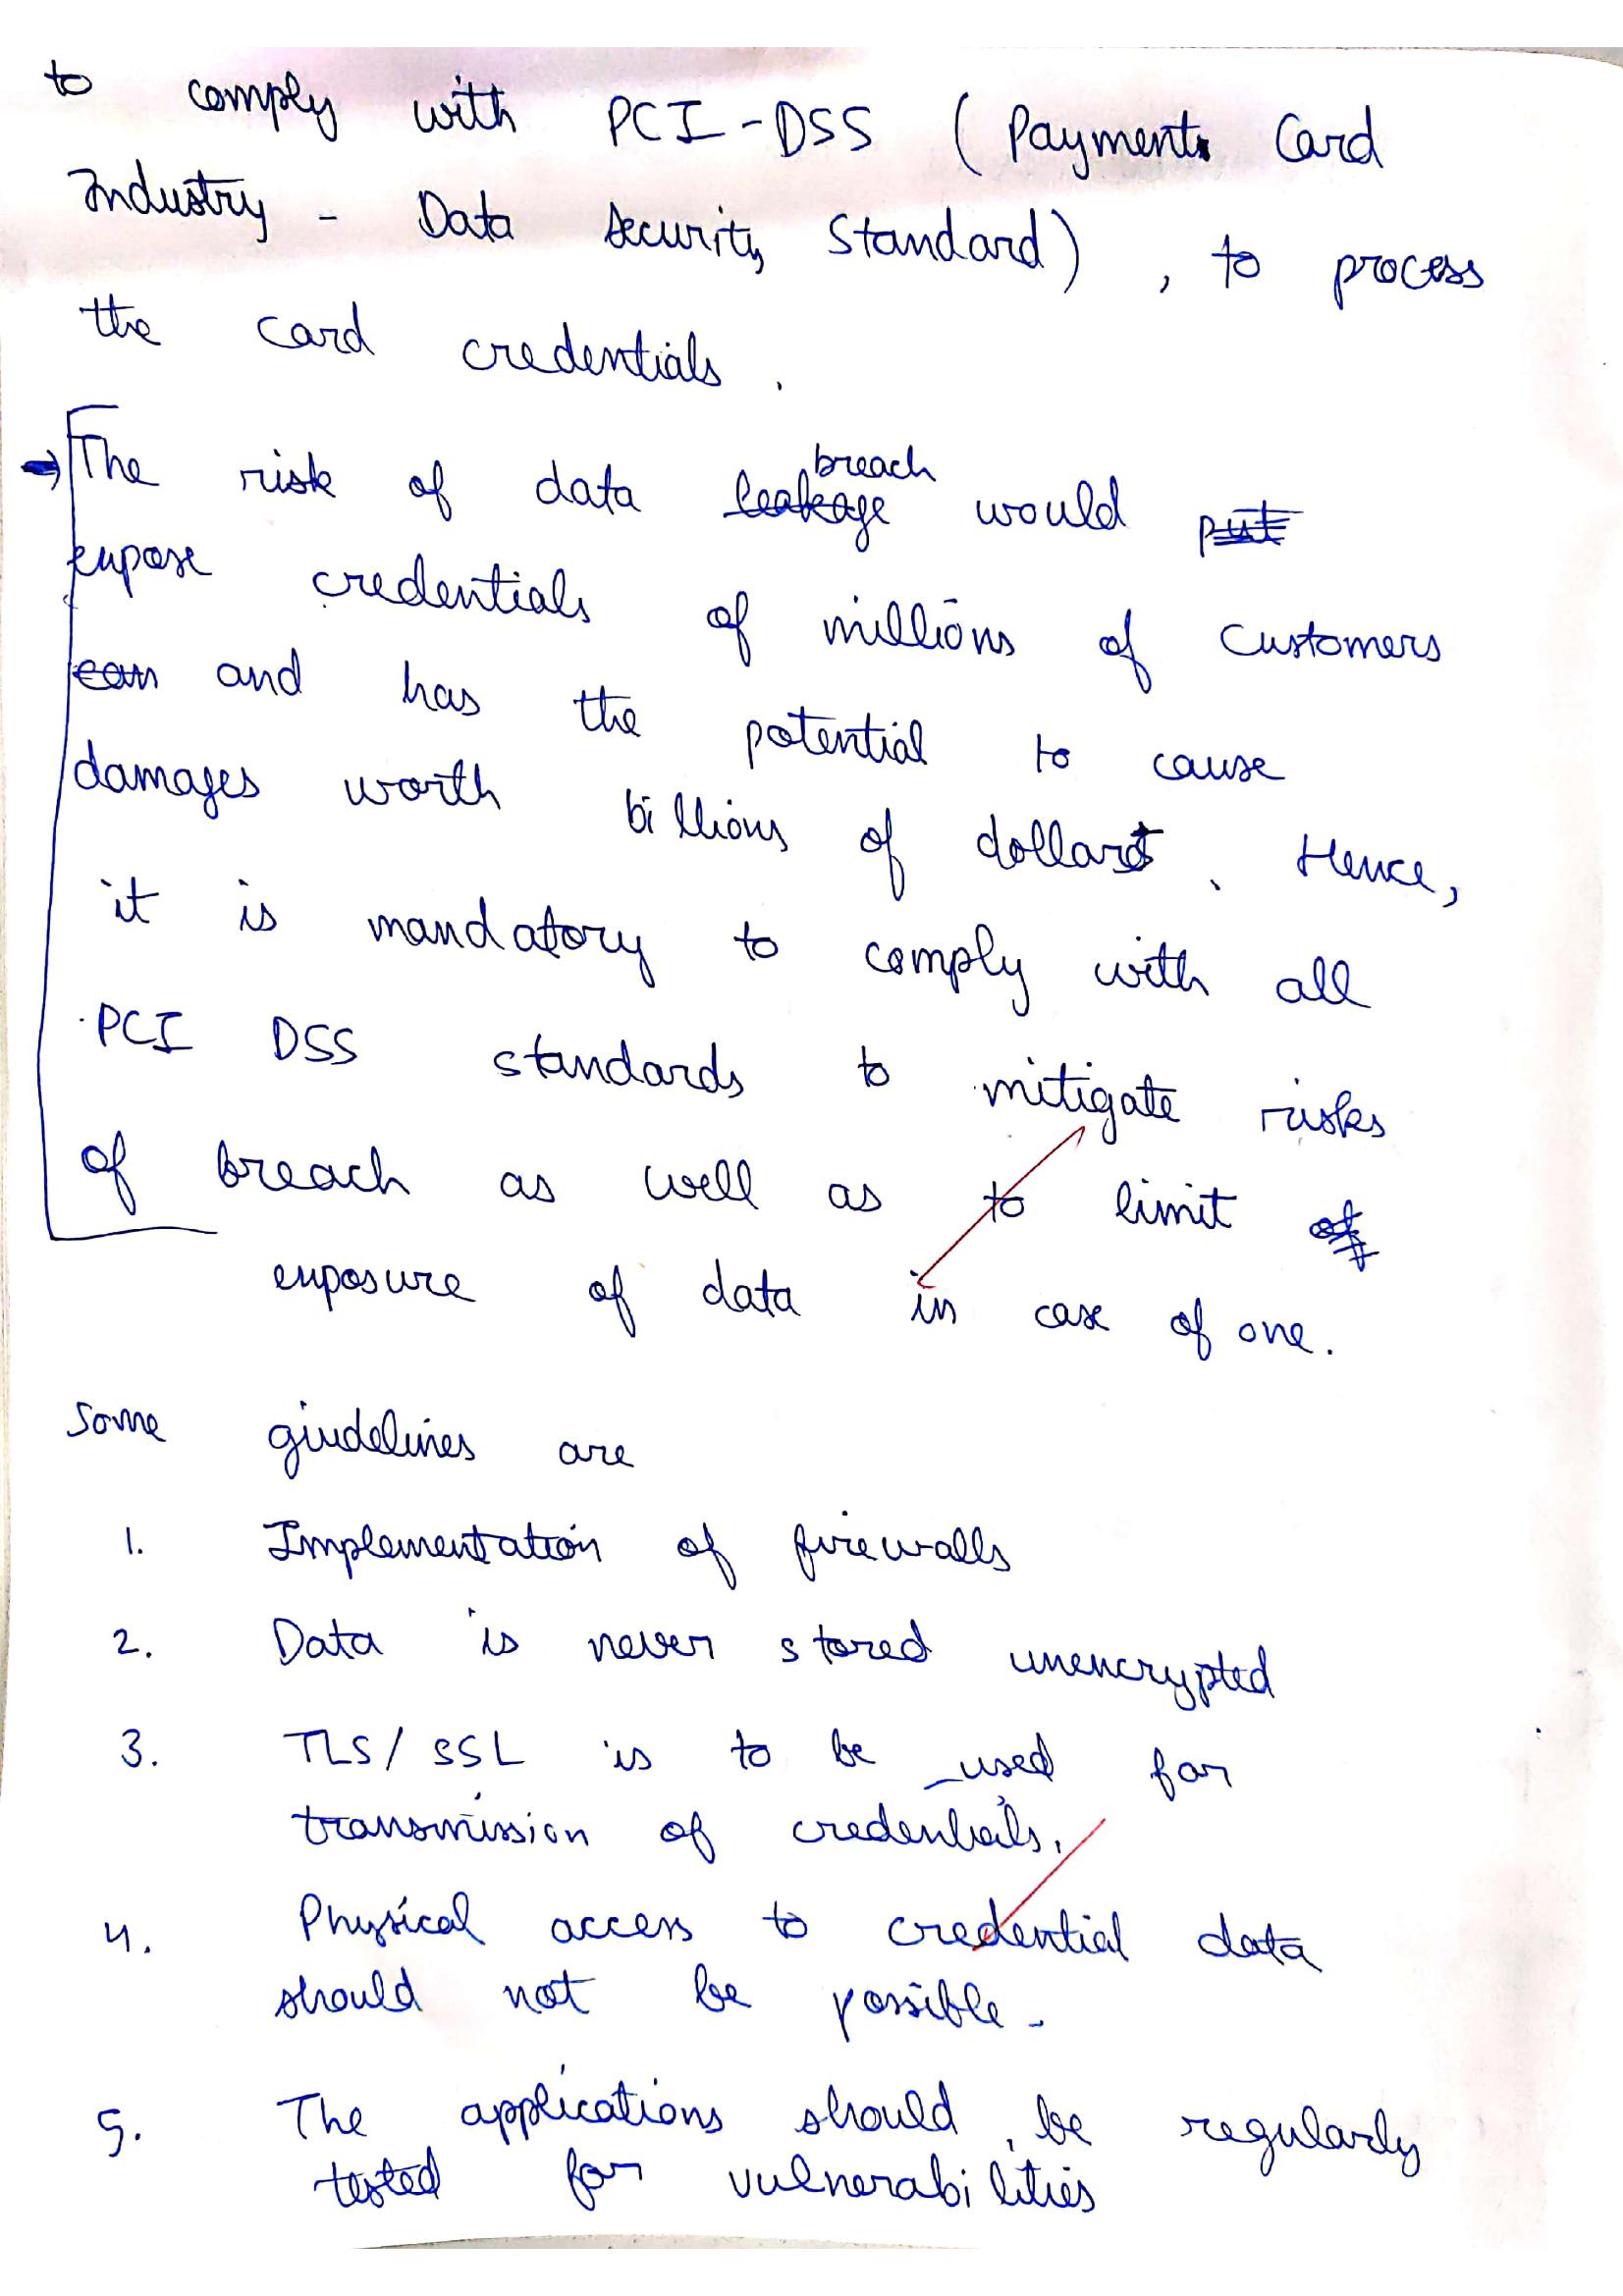 to comply with PCI-DSS (Payment Card
Industry - Data Security Standard), to process
the card credentials.
→ The risk of data leakage breach would put
expose credentials of millions of customers
can and has the potential to cause
damages worth billions of dollars. Hence,
it is mandatory to comply with all
PCI DSS standards to mitigate risks
of breach as well as to limit of
exposure of data in case of one.
Some guidelines are
1. Implementation of firewalls
2. Data is never stored unencrypted
3. TLS/SSL is to be used for
transmission of credentials.
4. Physical access to credential data
should not be possible.
5. The applications should be regularly
tested for vulnerabilities